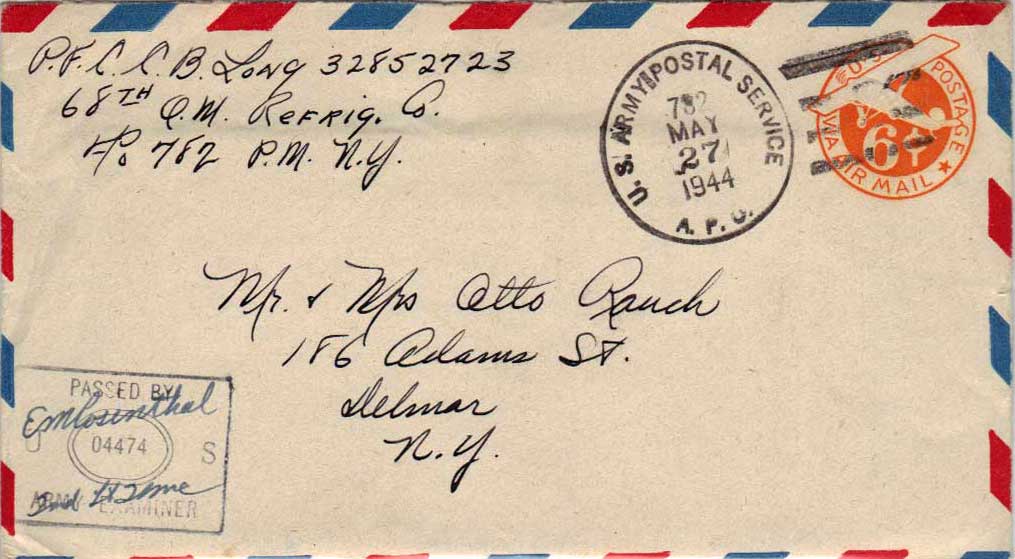 P.F.C. C. B. Long 32852723
68TH Q.M. Refrig. Co.
APO 782 P.M. N.Y.
U.S. ARMY POSTAL SERVICE
782
MAY
27
1944
A. P. O.
U.S. POSTAGE
6¢
VIA AIR MAIL
Mr. & Mrs Otto Rauch
186 Adams St.
Delmar
N.Y.
PASSED BY
EMRosenthal
U 04474 S
2nd Lt
ARMY EXAMINER